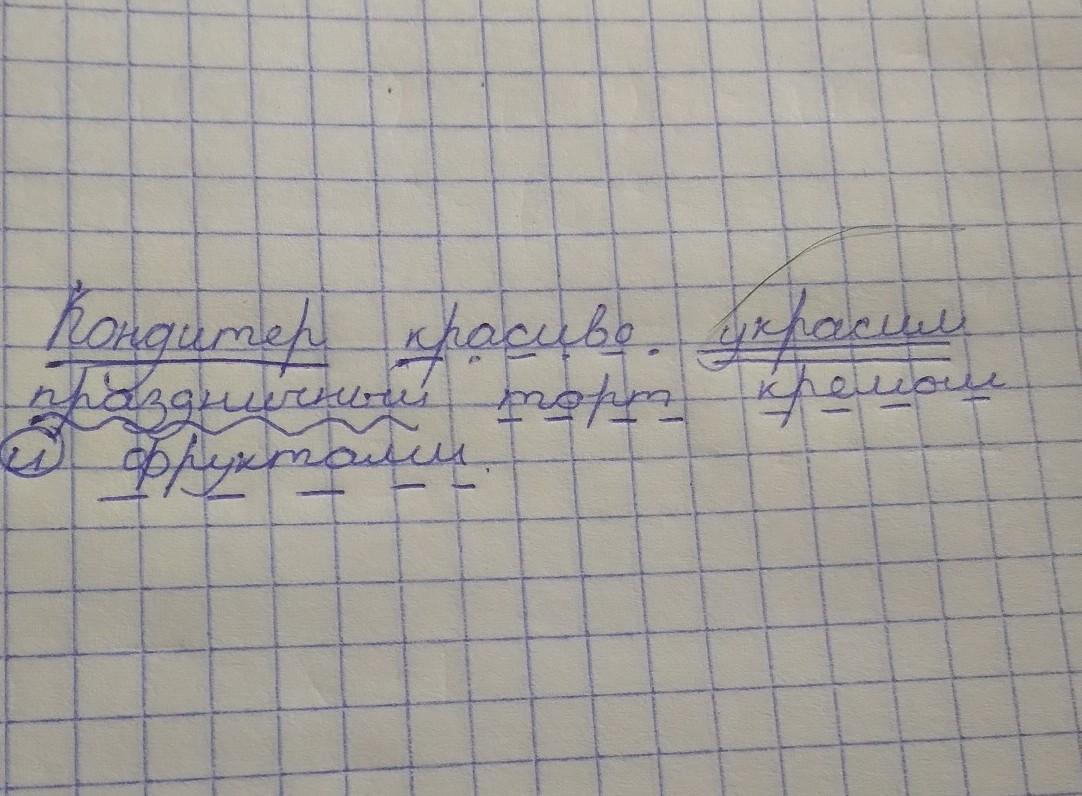 Кондитер красиво украсил
праздничный торт кремом
и фруктами.